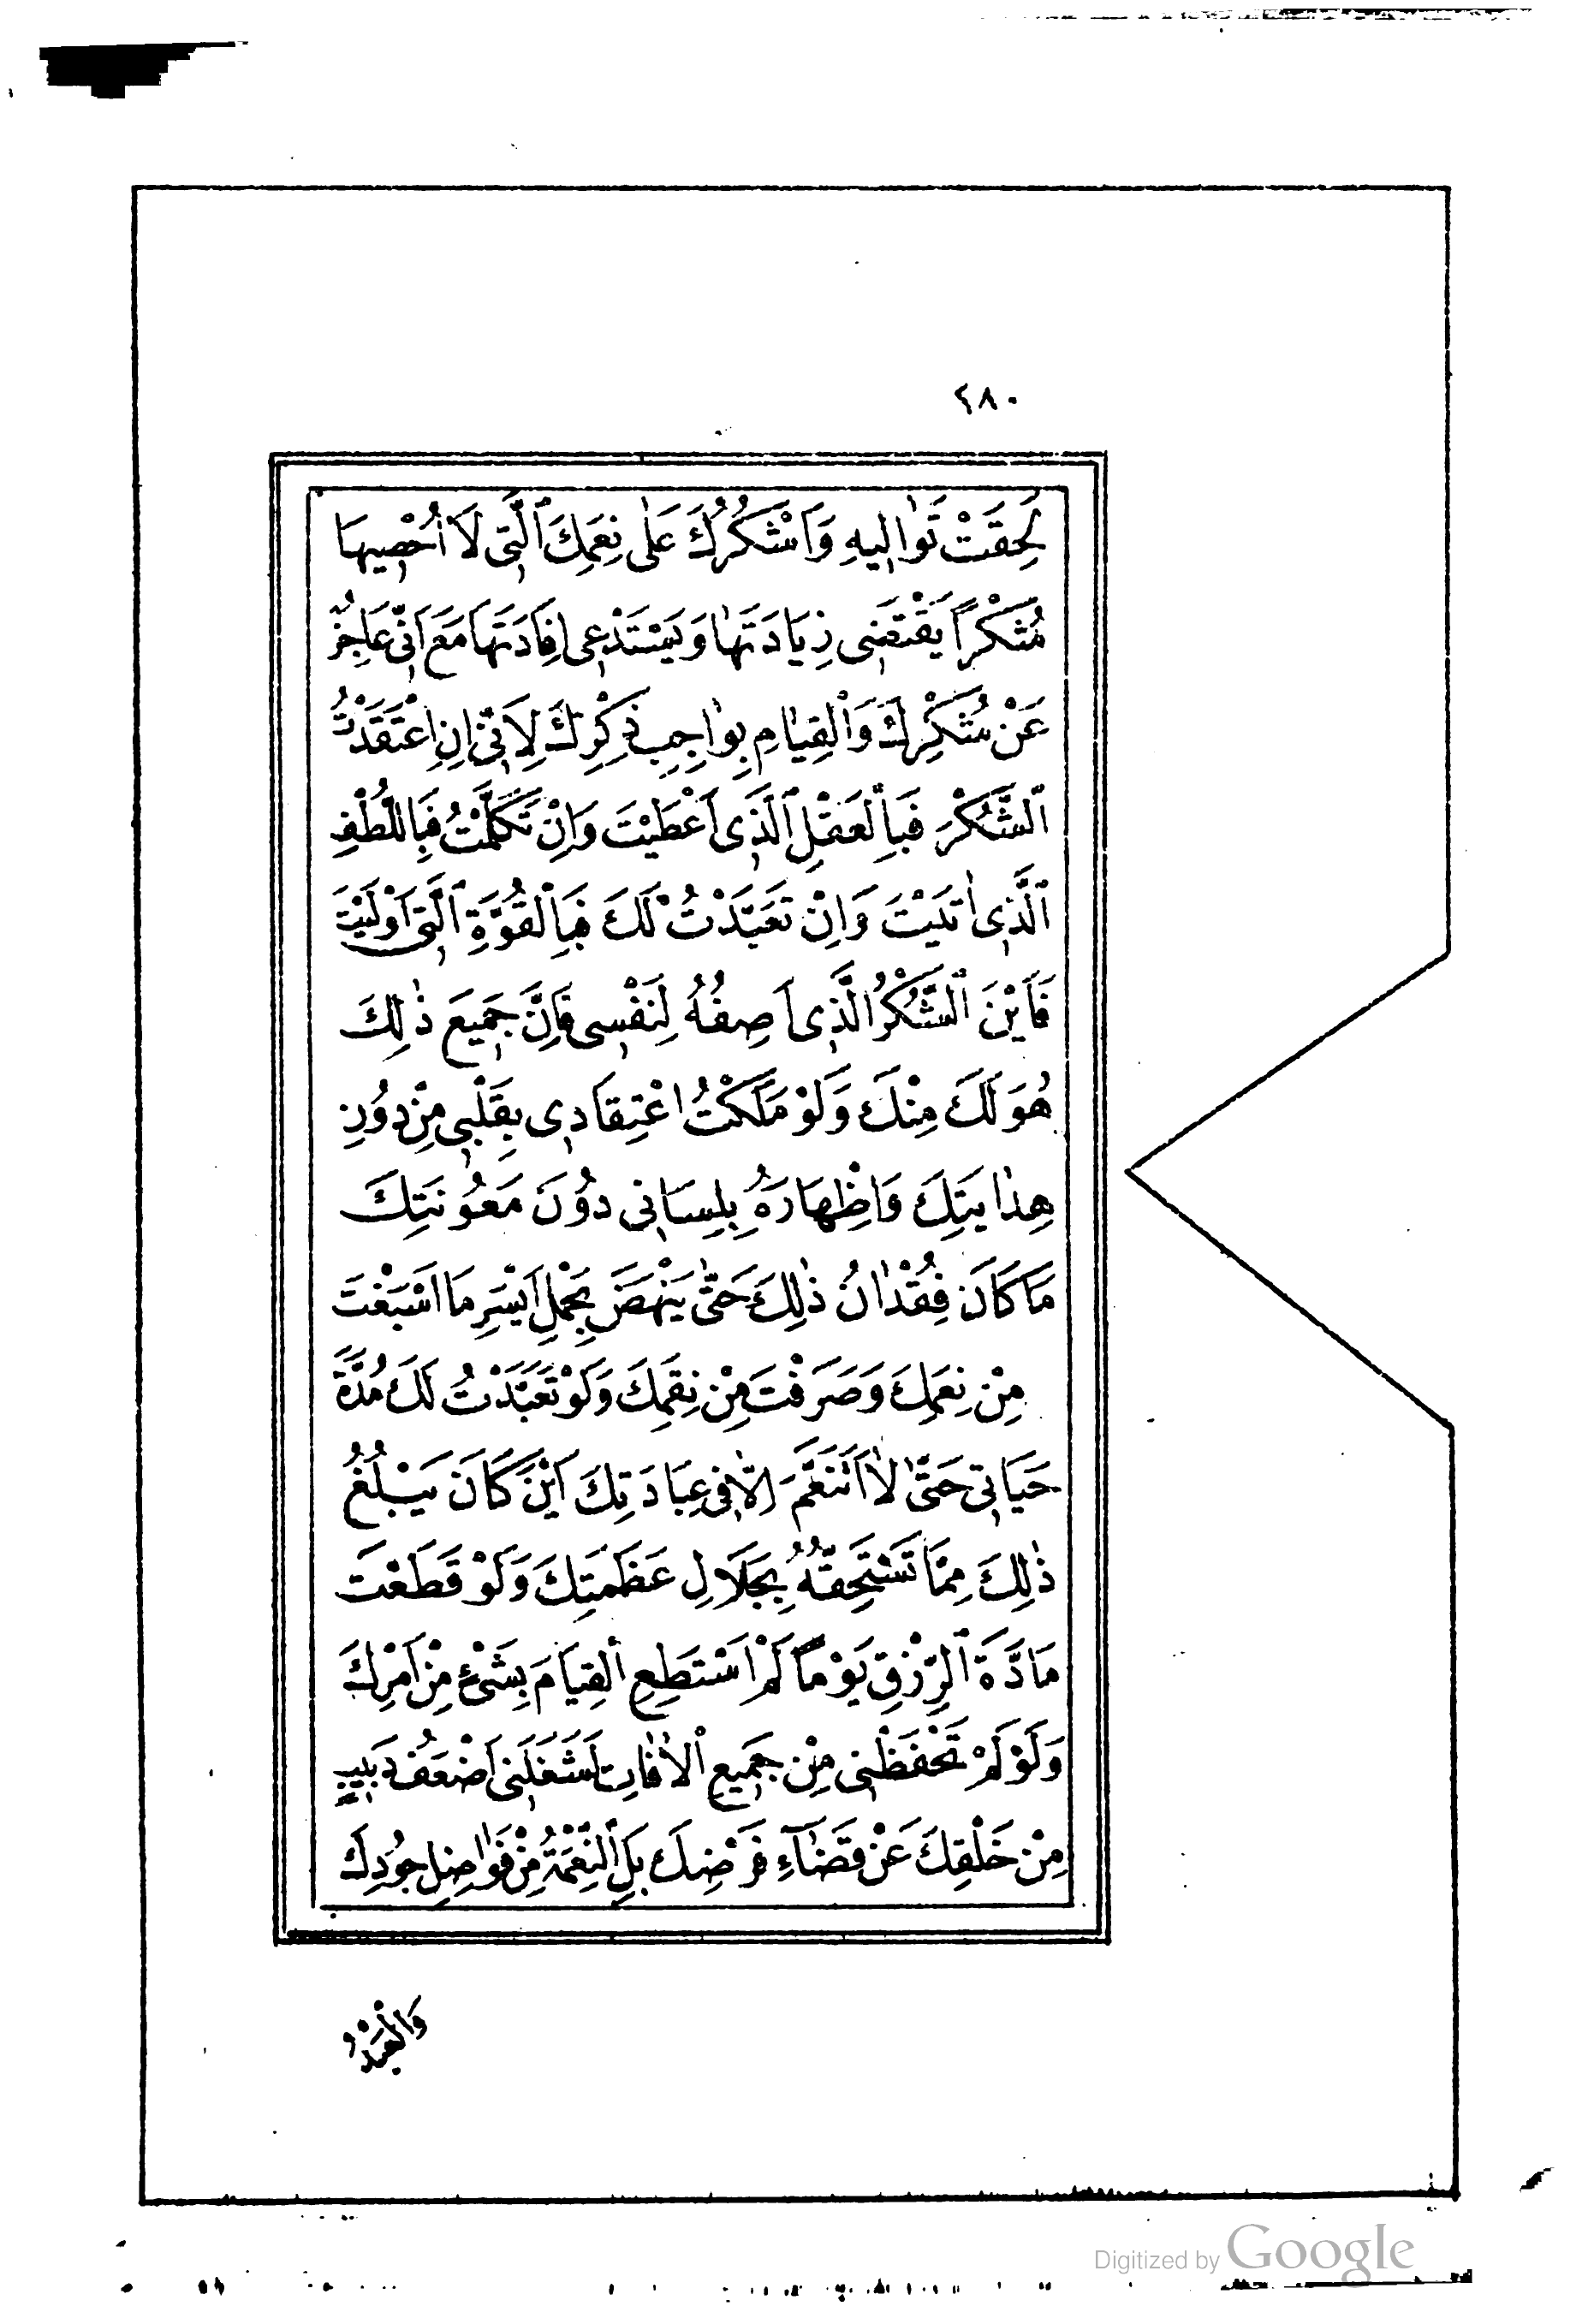 ٤٨٠
لَحِقَتْ تَوٰالِيهِ وَاَشْكُرُكَ عَلٰى نِعَمِكَ ٱلَّتِى لَا اُحْصِيهَا
شُكْرًا يَقْتَضِى زِيَادَتَهٰا وَيَسْتَدْعِى اِفَادَتَهَا مَعَ اَنِّى عَاجِزٌ
عَنْ شُكْرِكَ وَٱلْقِيٰامِ بِوٰاجِبِ ذِكْرِكَ لِاَنِّى اِنِ اعْتَقَدْتُ
ٱلشُّكْرَ فَبِالْعَقْلِ ٱلَّذِى اَعْطَيْتَ وَاِنْ تَكَلَّمْتُ فَبِاللُّطْفِ
ٱلَّذِى اٰتَيْتَ وَاِنْ تَعَبَّدْتُ لَكَ فَبِالْقُوَّةِ ٱلَّتِى اَوْلَيْتَ
فَاَيْنَ ٱلشُّكْرُ الَّذِى اَصِفُهُ لِنَفْسِى فَاِنَّ جَمِيعَ ذٰلِكَ
هُوَ لَكَ مِنْكَ وَلَوْ مَلَكْتُ اعْتِقَادِى بِقَلْبِى مِنْ دُوُنِ
هِدٰايَتِكَ وَاِظْهَارَهُ بِلِسَانِى دوُنَ مَعُونَتِكَ
مَا كَانَ فِقْدٰانُ ذٰلِكَ حَتّٰى يَنْهَضَ بِحَمْلِ اَيْسَرِ مَا اَسْبَغْتَ
مِنْ نِعَمِكَ وَصَرَفْتَ مِنْ نِقَمِكَ وَلَوْ تَعَبَّدْتُ لَكَ مُدَّةَ
حَيَاتِى حَتّٰى لٰا اَتَنَعَّمَ اِلّٰا فِى عِبَادَتِكَ اَيْنَ كَانَ يَبْلُغُ
ذٰلِكَ مِمَّا تَسْتَحِقُّهُ بِجَلَالِ عَظَمَتِكَ وَلَوْ قَطَعْتَ
مَادَّةَ ٱلرِّزْقِ يَوْمًا لَمْ اَسْتَطِعِ ٱلْقِيَامَ بِشَىْءٍ مِنْ اَمْرِكَ
وَلَوْ لَمْ تَحْفَظْنِى مِنْ جَمِيعِ ٱلْاٰفَاتِ لَشَغَلَنِى اَضْعَفُ دَبِيبٍ
مِنْ خَلْقِكَ عَنْ قَضَآءِ فَرْضِكَ بَلِ ٱلنِّعْمَةُ مِنْ فَوٰاضِلِ جُودِكَ
وَالْعَبْدُ
Digitized by Google